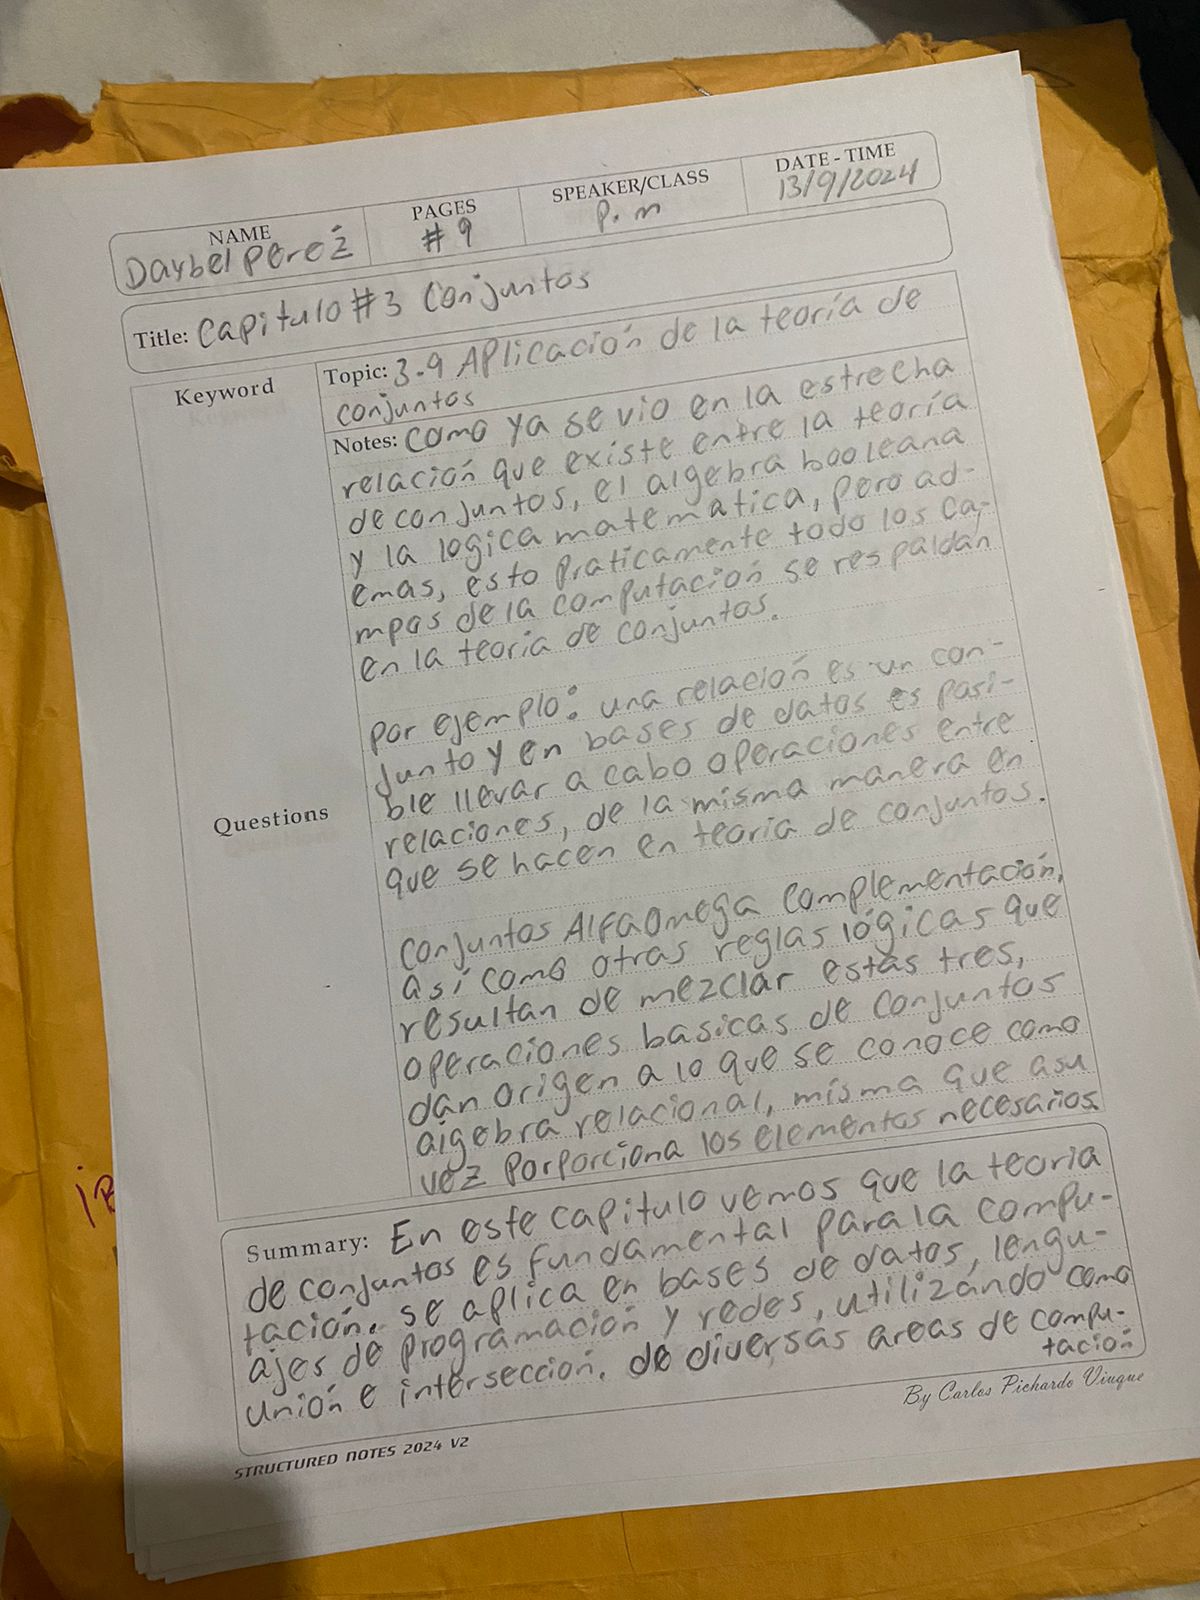 NAME
Daybel Perez
PAGES
# 9
SPEAKER/CLASS
P. m
DATE - TIME
13/9/2024
Title: Capitulo #3 Conjuntos
Keyword
Topic: 3.9 Aplicación de la teoría de
conjuntos
Notes: Como ya se vio en la estrecha
relación que existe entre la teoría
de conjuntos, el algebra booleana
y la logica matematica, pero ad-
emas, esto praticamente todo los ca-
mpos de la computación se respaldan
en la teoria de conjuntos.
por ejemplo: una relación es un con-
junto y en bases de datos es posi-
ble llevar a cabo operaciones entre
relaciones, de la misma manera en
que se hacen en teoria de conjuntos.
Questions
Conjuntos Alfaomega Complementación,
así como otras reglas lógicas que
resultan de mezclar estas tres,
operaciones basicas de conjuntos
dan origen a lo que se conoce como
algebra relacional, misma que asu
vez porporciona los elementos necesarios
Summary: En este capitulo vemos que la teoria
de conjuntos es fundamental para la compu-
tación. se aplica en bases de datos, lengu-
ajes de programación y redes, utilizando como
unión e intersección. de diversas areas de compu-
tación
By Carlos Pichardo Viuque
STRUCTURED NOTES 2024 V2